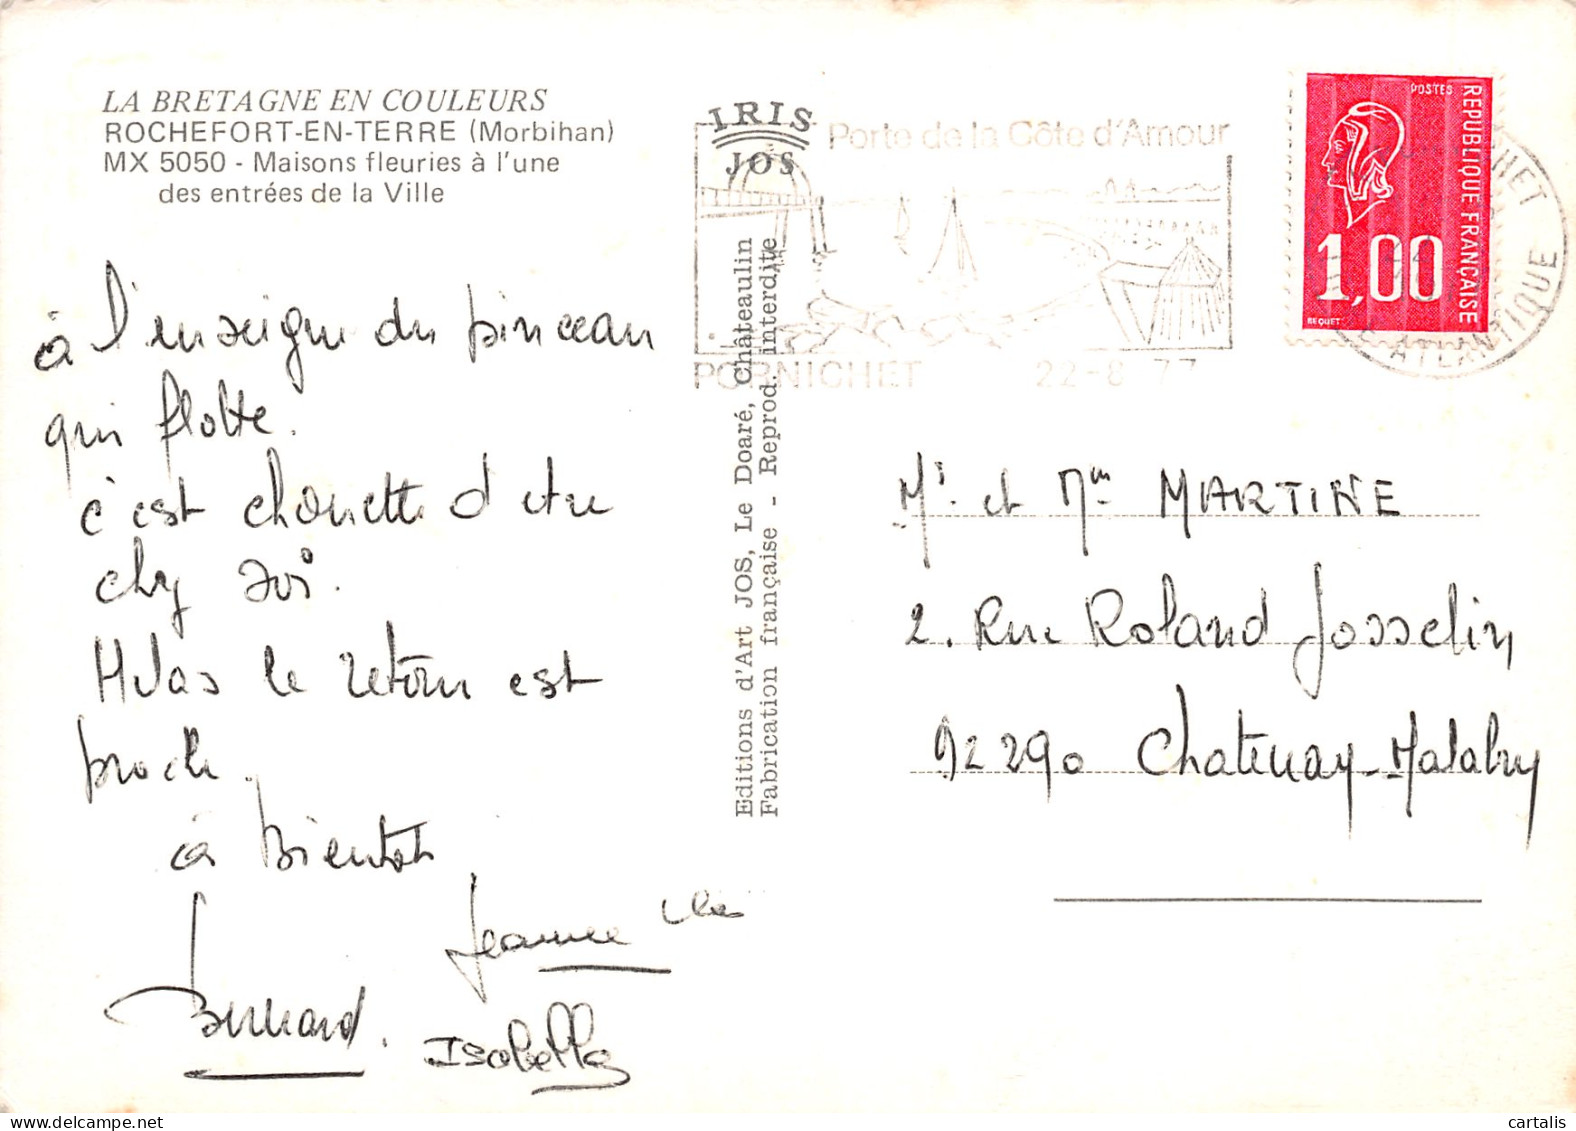 LA BRETAGNE EN COULEURS
ROCHEFORT-EN-TERRE (Morbihan)
MX 5050 - Maisons fleuries à l'une
des entrées de la Ville
à l'enseigne du pinceau
qui flotte.
c'est chouette d'être
chez soi.
Hélas le retour est
proche.
à Bientôt
Jeanne
Bernard.
Isabelle
IRIS
JOS
Editions d'Art JOS, Le Doaré, Châteaulin
Fabrication française - Reprod. interdite
Porte de la Côte d'Amour
PORNICHET 22-8 77
POSTES
REPUBLIQUE FRANÇAISE
1,00
BEQUET
ATLANTIQUE
Mr. et Mme MARTINE
2. Rue Roland Josselin
92290 Chatenay-Malabry
cartalis